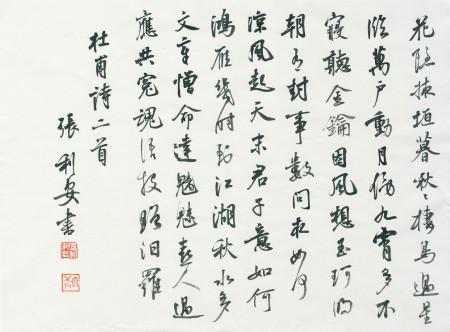 花隱掖垣暮啾々棲鳥過星
臨萬戶動月傍九霄多不
寢聽金鑰因風想玉珂明
朝有封事數問夜如何
涼風起天末君子意如何
鴻雁幾時到江湖秋水多
文章憎命達魑魅喜人過
應共冤魂語投贈汨羅
杜甫詩二首
張利安書